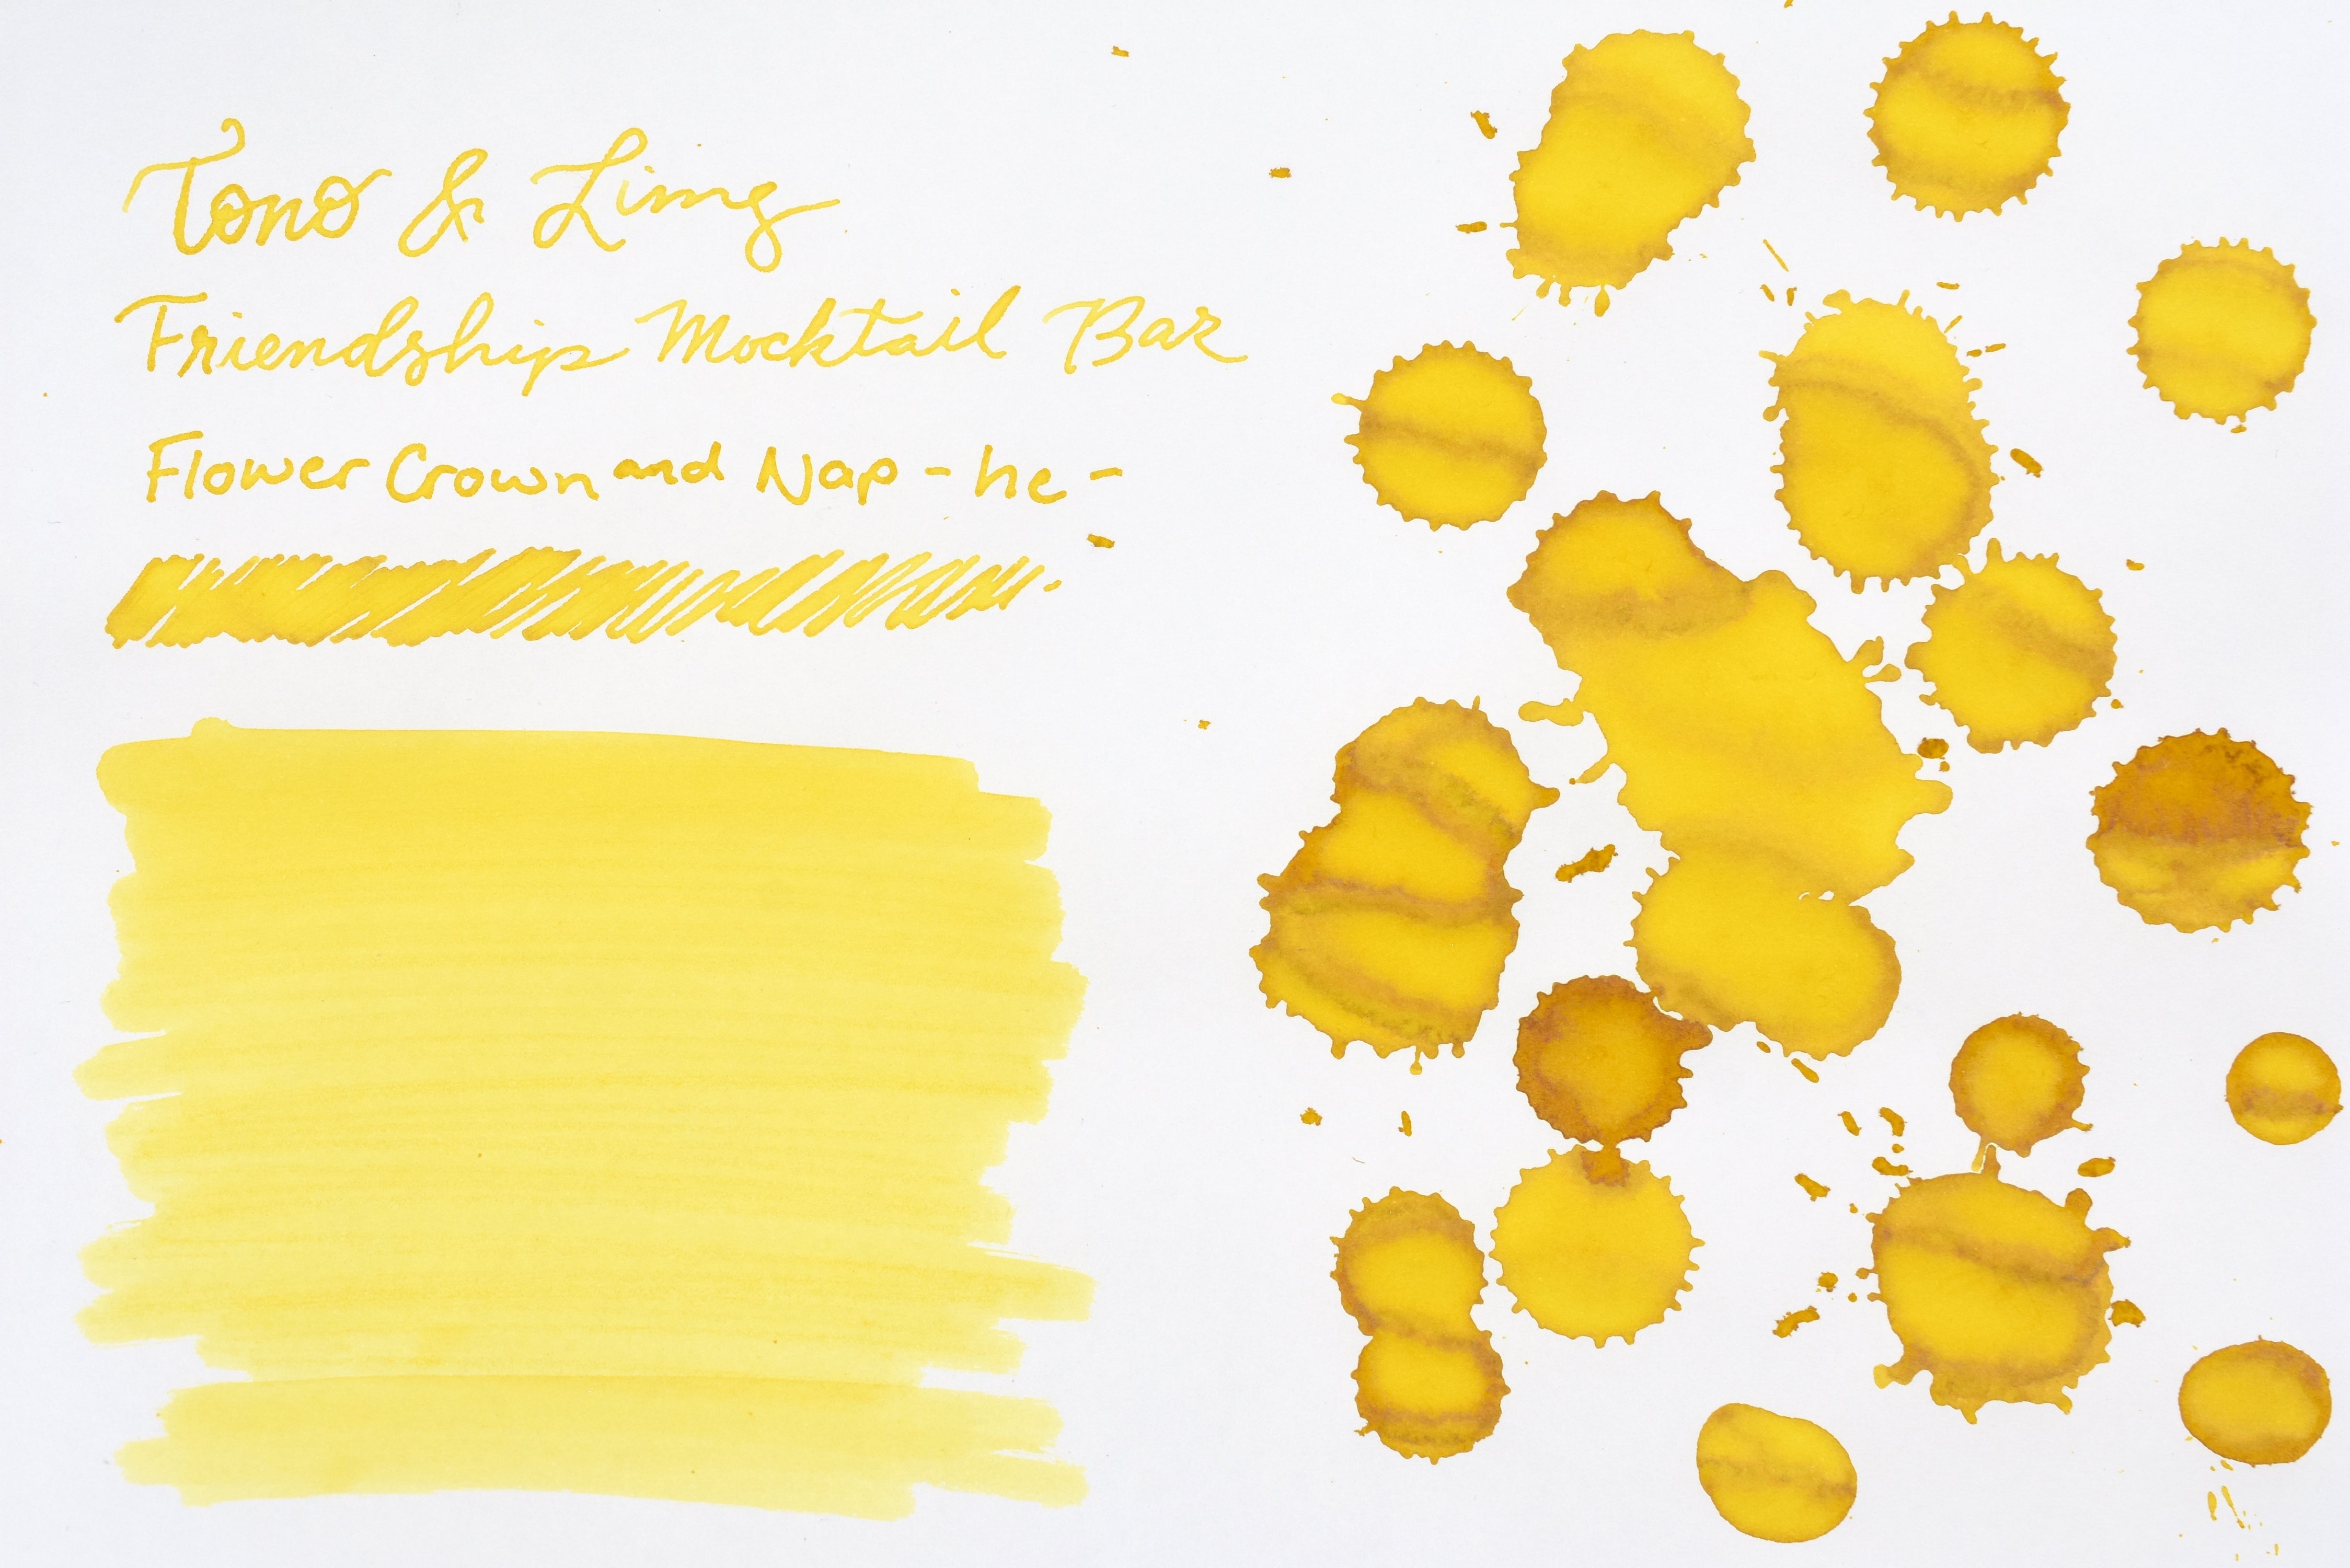 Tono & Lims
Friendship Mocktail Bar
Flower Crown and Nap - he -